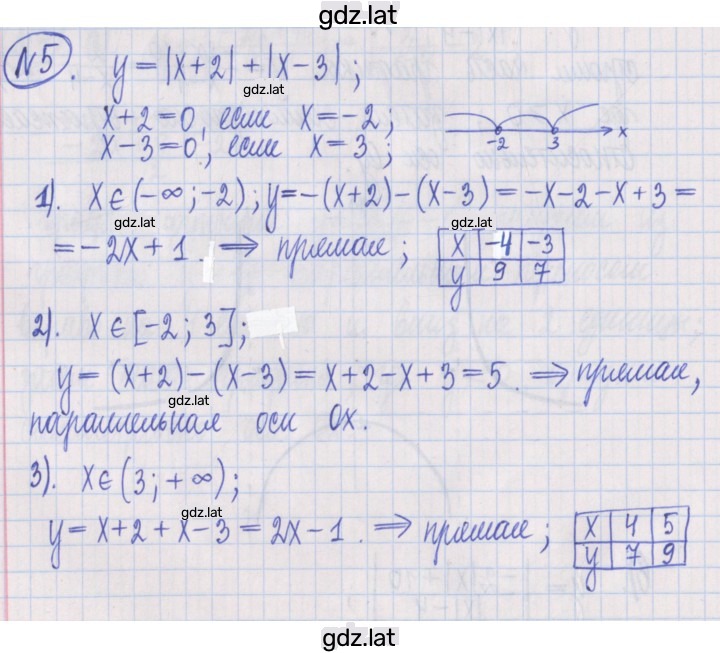 gdz.lat
№5. y = |x+2| + |x-3|;
gdz.lat
x+2=0, если x=-2;
x-3=0, если x=3;
-2 3 x
gdz.lat
1). x∈(-∞;-2); y=-(x+2)-(x-3)=-x-2-x+3=
gdz.lat gdz.lat
=-2x+1. ⟹ прямая;
x -4 -3
y 9 7
2). x∈[-2; 3];
y=(x+2)-(x-3)=x+2-x+3=5. ⟹ прямая,
gdz.lat
параллельная оси Ox.
3). x∈(3;+∞);
y=x+2+x-3=2x-1. ⟹ прямая;
gdz.lat
x 4 5
y 7 9
gdz.lat